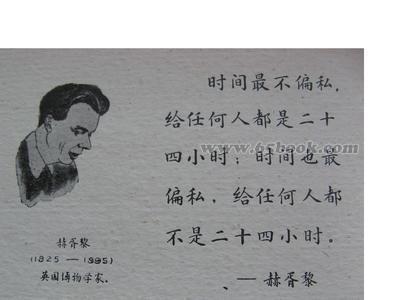 时间最不偏私，
给任何人都是二十
四小时；时间也最
偏私，给任何人都
不是二十四小时。
— 赫胥黎
赫胥黎
(1825 — 1995)
英国博物学家。
www.65book.com